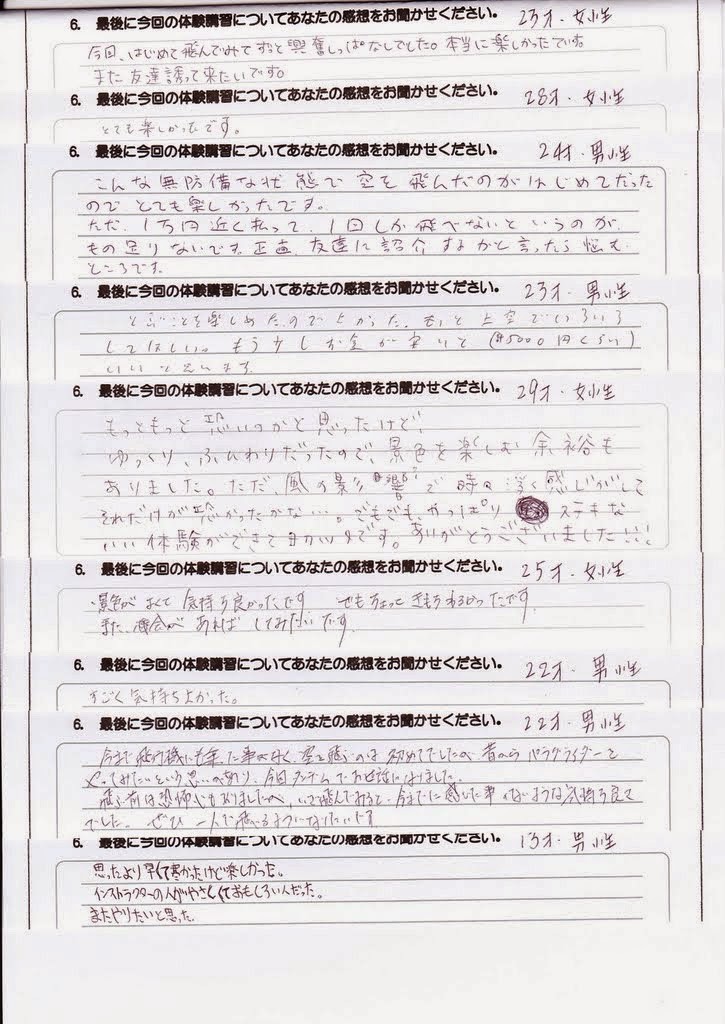 6. 最後に今回の体験講習についてあなたの感想をお聞かせください。 23才・女性
今回、はじめて飛んでみてずっと興奮しっぱなしでした。本当に楽しかったです。
また友達誘って来たいです。
6. 最後に今回の体験講習についてあなたの感想をお聞かせください。 28才・女性
とても楽しかったです。
6. 最後に今回の体験講習についてあなたの感想をお聞かせください。 24才・男性
こんな無防備な状態で空を飛んだのがはじめてだった
のでとても楽しかったです。
ただ、1万円近く払って、1回しか飛べないというのが、
もの足りないです。正直、友達に紹介するかと言ったら悩む
ところです。
6. 最後に今回の体験講習についてあなたの感想をお聞かせください。 23才・男性
とぶことを楽しめたのでよかった。もっと上空でいろいろ
してほしい。もう少しお金が安いと(¥5000円くらい)
いいと思います
6. 最後に今回の体験講習についてあなたの感想をお聞かせください。 29才・女性
もっともっと恐いのかと思ったけど、
ゆっくり、ふんわりだったので、景色を楽しむ余裕も
ありました。ただ、風の影響で時々浮く感じがして
それだけが恐かったかな…。でもでも、やっぱり ステキな
いい体験ができて です。ありがとうございました!!!
6. 最後に今回の体験講習についてあなたの感想をお聞かせください。 25才・女性
景色がよくて気持ち良かったです でもちょっときもちわるかったです。
また、機会があればしてみたいです。
6. 最後に今回の体験講習についてあなたの感想をお聞かせください。 22才・男性
すごく気持ちよかった。
6. 最後に今回の体験講習についてあなたの感想をお聞かせください。 22才・男性
今まで飛行機にも乗った事がなく、空を飛ぶのは初めてでしたが、昔からパラグライダーを
やってみたいという思いがあり、今回タンデムでお世話になりました。
飛ぶ前は恐怖心もありましたが、いざ飛んでみると、今までに感じた事がないような気持ち良さ
でした。ぜひ一人で飛べるようになりたいです
6. 最後に今回の体験講習についてあなたの感想をお聞かせください。 13才・男性
思ったより早くて寒かったけど楽しかった。
インストラクターの人がやさしくておもしろい人だった。
またやりたいと思った。